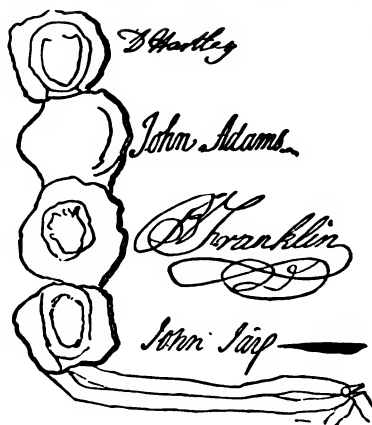 D Hartley
John Adams
B Franklin
John Jay